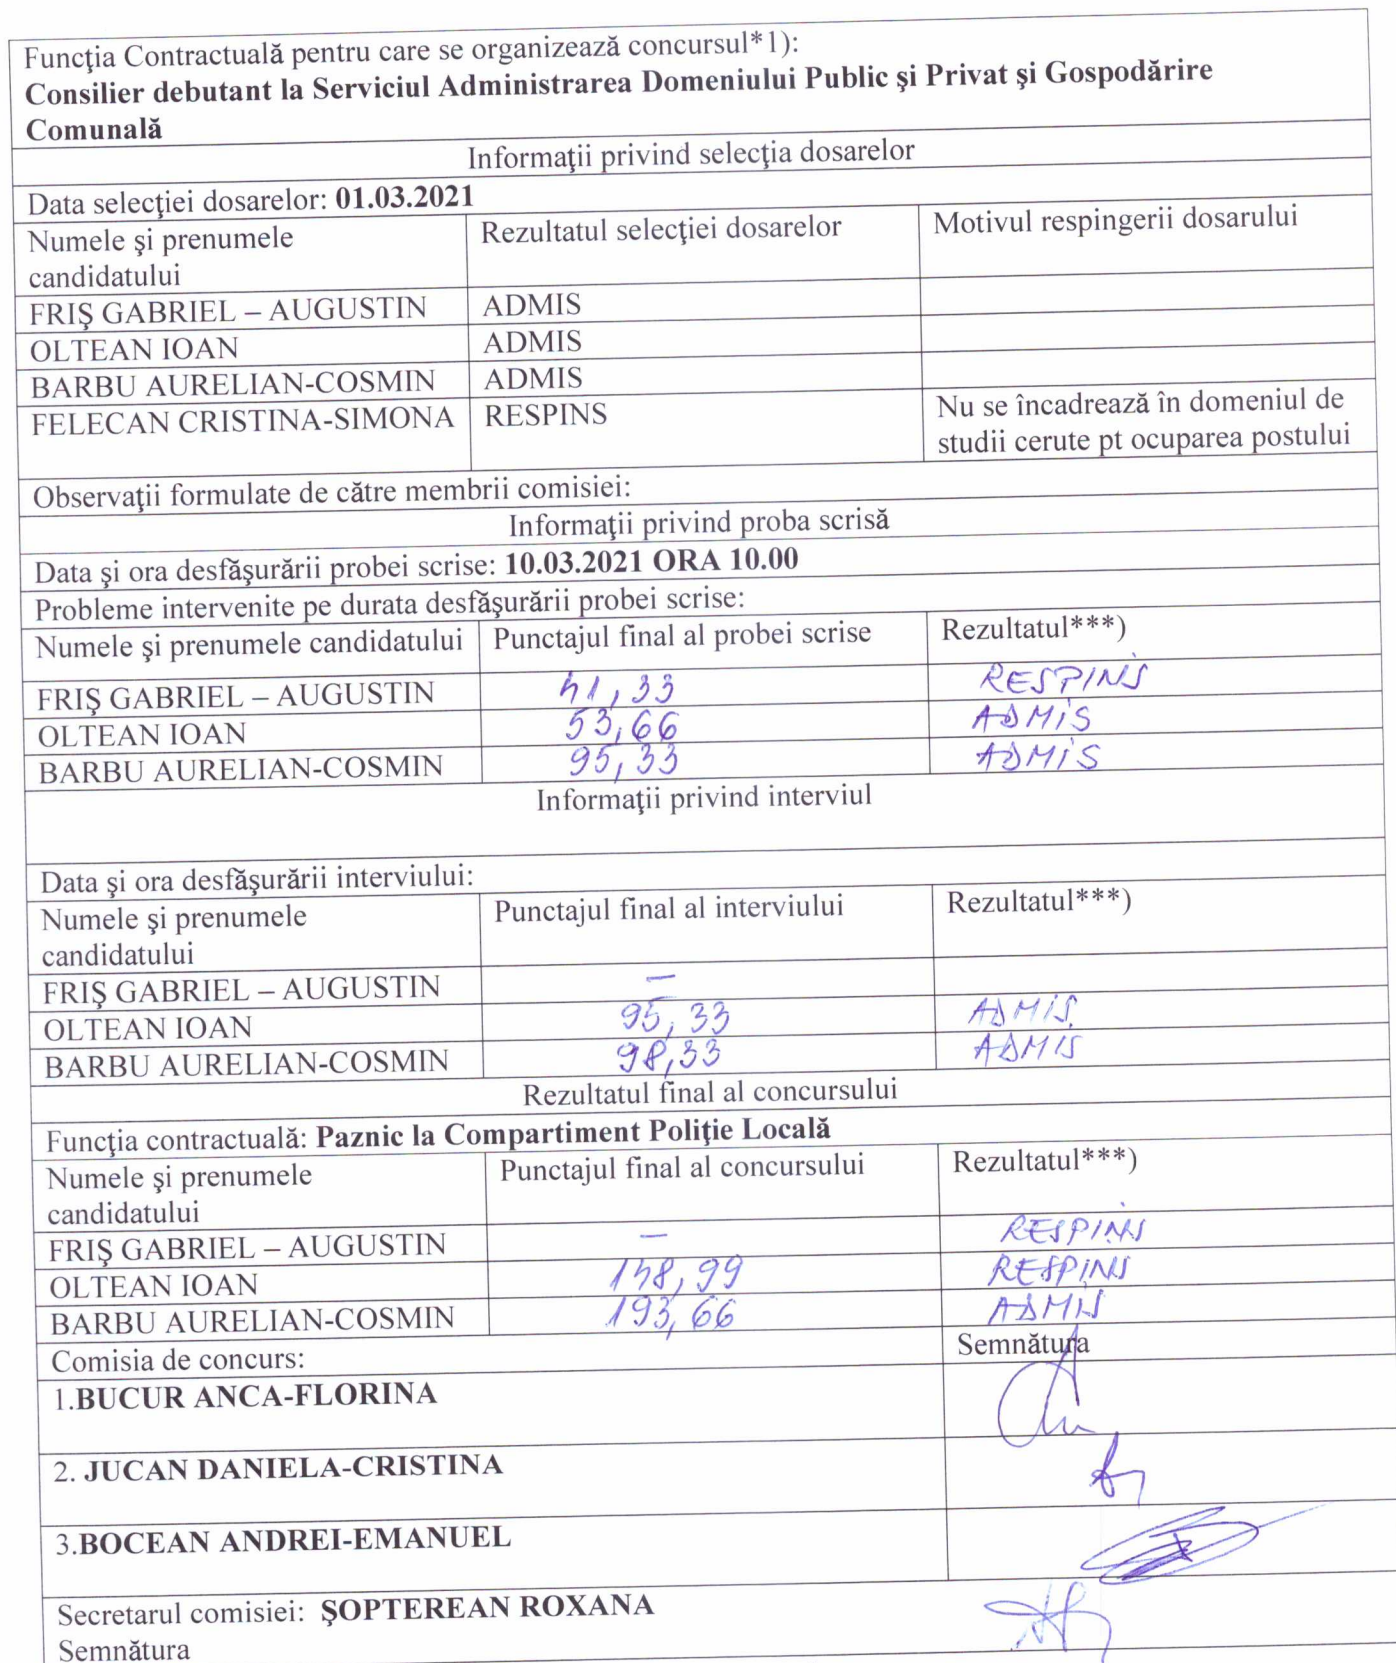 Funcţia Contractuală pentru care se organizează concursul*1):
Consilier debutant la Serviciul Administrarea Domeniului Public şi Privat şi Gospodărire
Comunală
Informaţii privind selecţia dosarelor
Data selecţiei dosarelor: 01.03.2021
Numele şi prenumele candidatului Rezultatul selecţiei dosarelor Motivul respingerii dosarului
FRIŞ GABRIEL – AUGUSTIN ADMIS
OLTEAN IOAN ADMIS
BARBU AURELIAN-COSMIN ADMIS
FELECAN CRISTINA-SIMONA RESPINS Nu se încadrează în domeniul de
studii cerute pt ocuparea postului
Observaţii formulate de către membrii comisiei:
Informaţii privind proba scrisă
Data şi ora desfăşurării probei scrise: 10.03.2021 ORA 10.00
Probleme intervenite pe durata desfăşurării probei scrise:
Numele şi prenumele candidatului Punctajul final al probei scrise Rezultatul***)
FRIŞ GABRIEL – AUGUSTIN 41,33 RESPINS
OLTEAN IOAN 53,66 ADMIS
BARBU AURELIAN-COSMIN 95,33 ADMIS
Informaţii privind interviul
Data şi ora desfăşurării interviului:
Numele şi prenumele candidatului Punctajul final al interviului Rezultatul***)
FRIŞ GABRIEL – AUGUSTIN —
OLTEAN IOAN 95,33 ADMIS
BARBU AURELIAN-COSMIN 98,33 ADMIS
Rezultatul final al concursului
Funcţia contractuală: Paznic la Compartiment Poliţie Locală
Numele şi prenumele candidatului Punctajul final al concursului Rezultatul***)
FRIŞ GABRIEL – AUGUSTIN — RESPINS
OLTEAN IOAN 148,99 RESPINS
BARBU AURELIAN-COSMIN 193,66 ADMIS
Comisia de concurs: Semnătura
1.BUCUR ANCA-FLORINA
2. JUCAN DANIELA-CRISTINA
3.BOCEAN ANDREI-EMANUEL
Secretarul comisiei: ŞOPTEREAN ROXANA
Semnătura